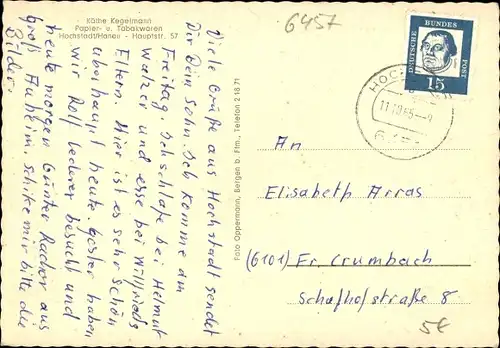 Käthe Kegelmann
Papier- u. Tabakwaren
Hochstadt/Hanau - Hauptstr. 57
6457
DEUTSCHE BUNDESPOST
15
HOCHST
11.10.65
Viele Grüße aus Hochstadt sendet
Dir Dein Sohn. Ich komme am
Freitag. Ich schlafe bei Helmut
Walzer und esse bei Willfrieds
Eltern. Hier ist es sehr schön
überhaupt heute. Gester haben
wir Rolf Lederer besucht und
heute morgen Günter Racher aus
Groß Auheim. Schike mir bitte die
Bilder.
Foto Oppermann, Bergen b. Ffm., Telefon 2 18 71
An
Elisabeth Arras
(6101) Fr. Crumbach
Schafhofstraße 8
5€